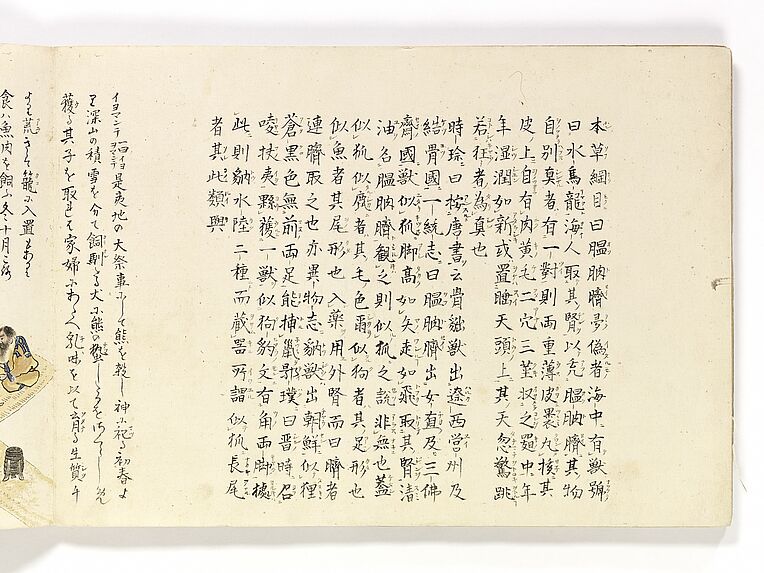 本草綱目曰膃肭臍多偽者海中有獣號
曰水烏龍海人取其腎以充膃肭臍其物
自別眞者有一對則両重薄皮裹丸核其
皮上自有肉黄毛一穴三茎収之器中年
年湿潤如新或置睡犬頭上其犬忽驚跳
若狂者為眞也
時珍曰按唐書云骨貀獣出遼西営州及
結骨國一統志曰膃肭臍出女直及三佛
齊國獣似狐脚髙如犬走如飛取其腎漬
油名膃肭臍観之則似狐之説非無也蓋
似狐似鹿者其毛色爾似狗者其足形也
似魚者其尾形也入薬用外腎而曰臍者
連臍取之也亦異物志貀獣出朝鮮似狸
蒼黒色無前両足能捕鼠郭璞曰晋時召
陵扶夷縣獲一獣似狗豹文有角両脚據
此則貀水陸二種而蔵器所謂似狐長尾
者其此類與
イヨマンテ 是夷地の大祭事にして熊を殺し神に祀る初春よ
り深山の積雪を分て飼馴る犬に熊の
獲る其子を取れは家婦にあたへ乳味を以て育る生質
籠に入置
食ハ魚肉を飼ふ冬十月